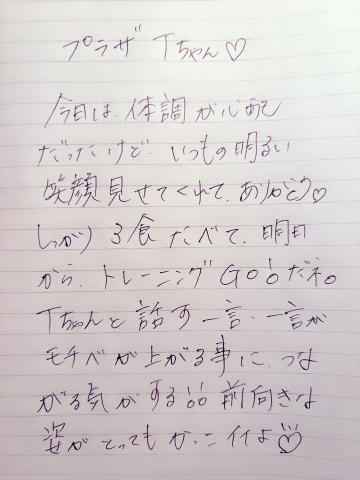 プラザ Tちゃん♡
今日は、体調が心配
だったけど、いつもの明るい
笑顔見せてくれて、ありがとう♡
しっかり3食たべて、明日
から、トレーニングGO!だネ。
Tちゃんと話す一言、一言が
モチベが上がる事に、つな
がる気がする!!前向きな
姿がとってもかっこイイよ